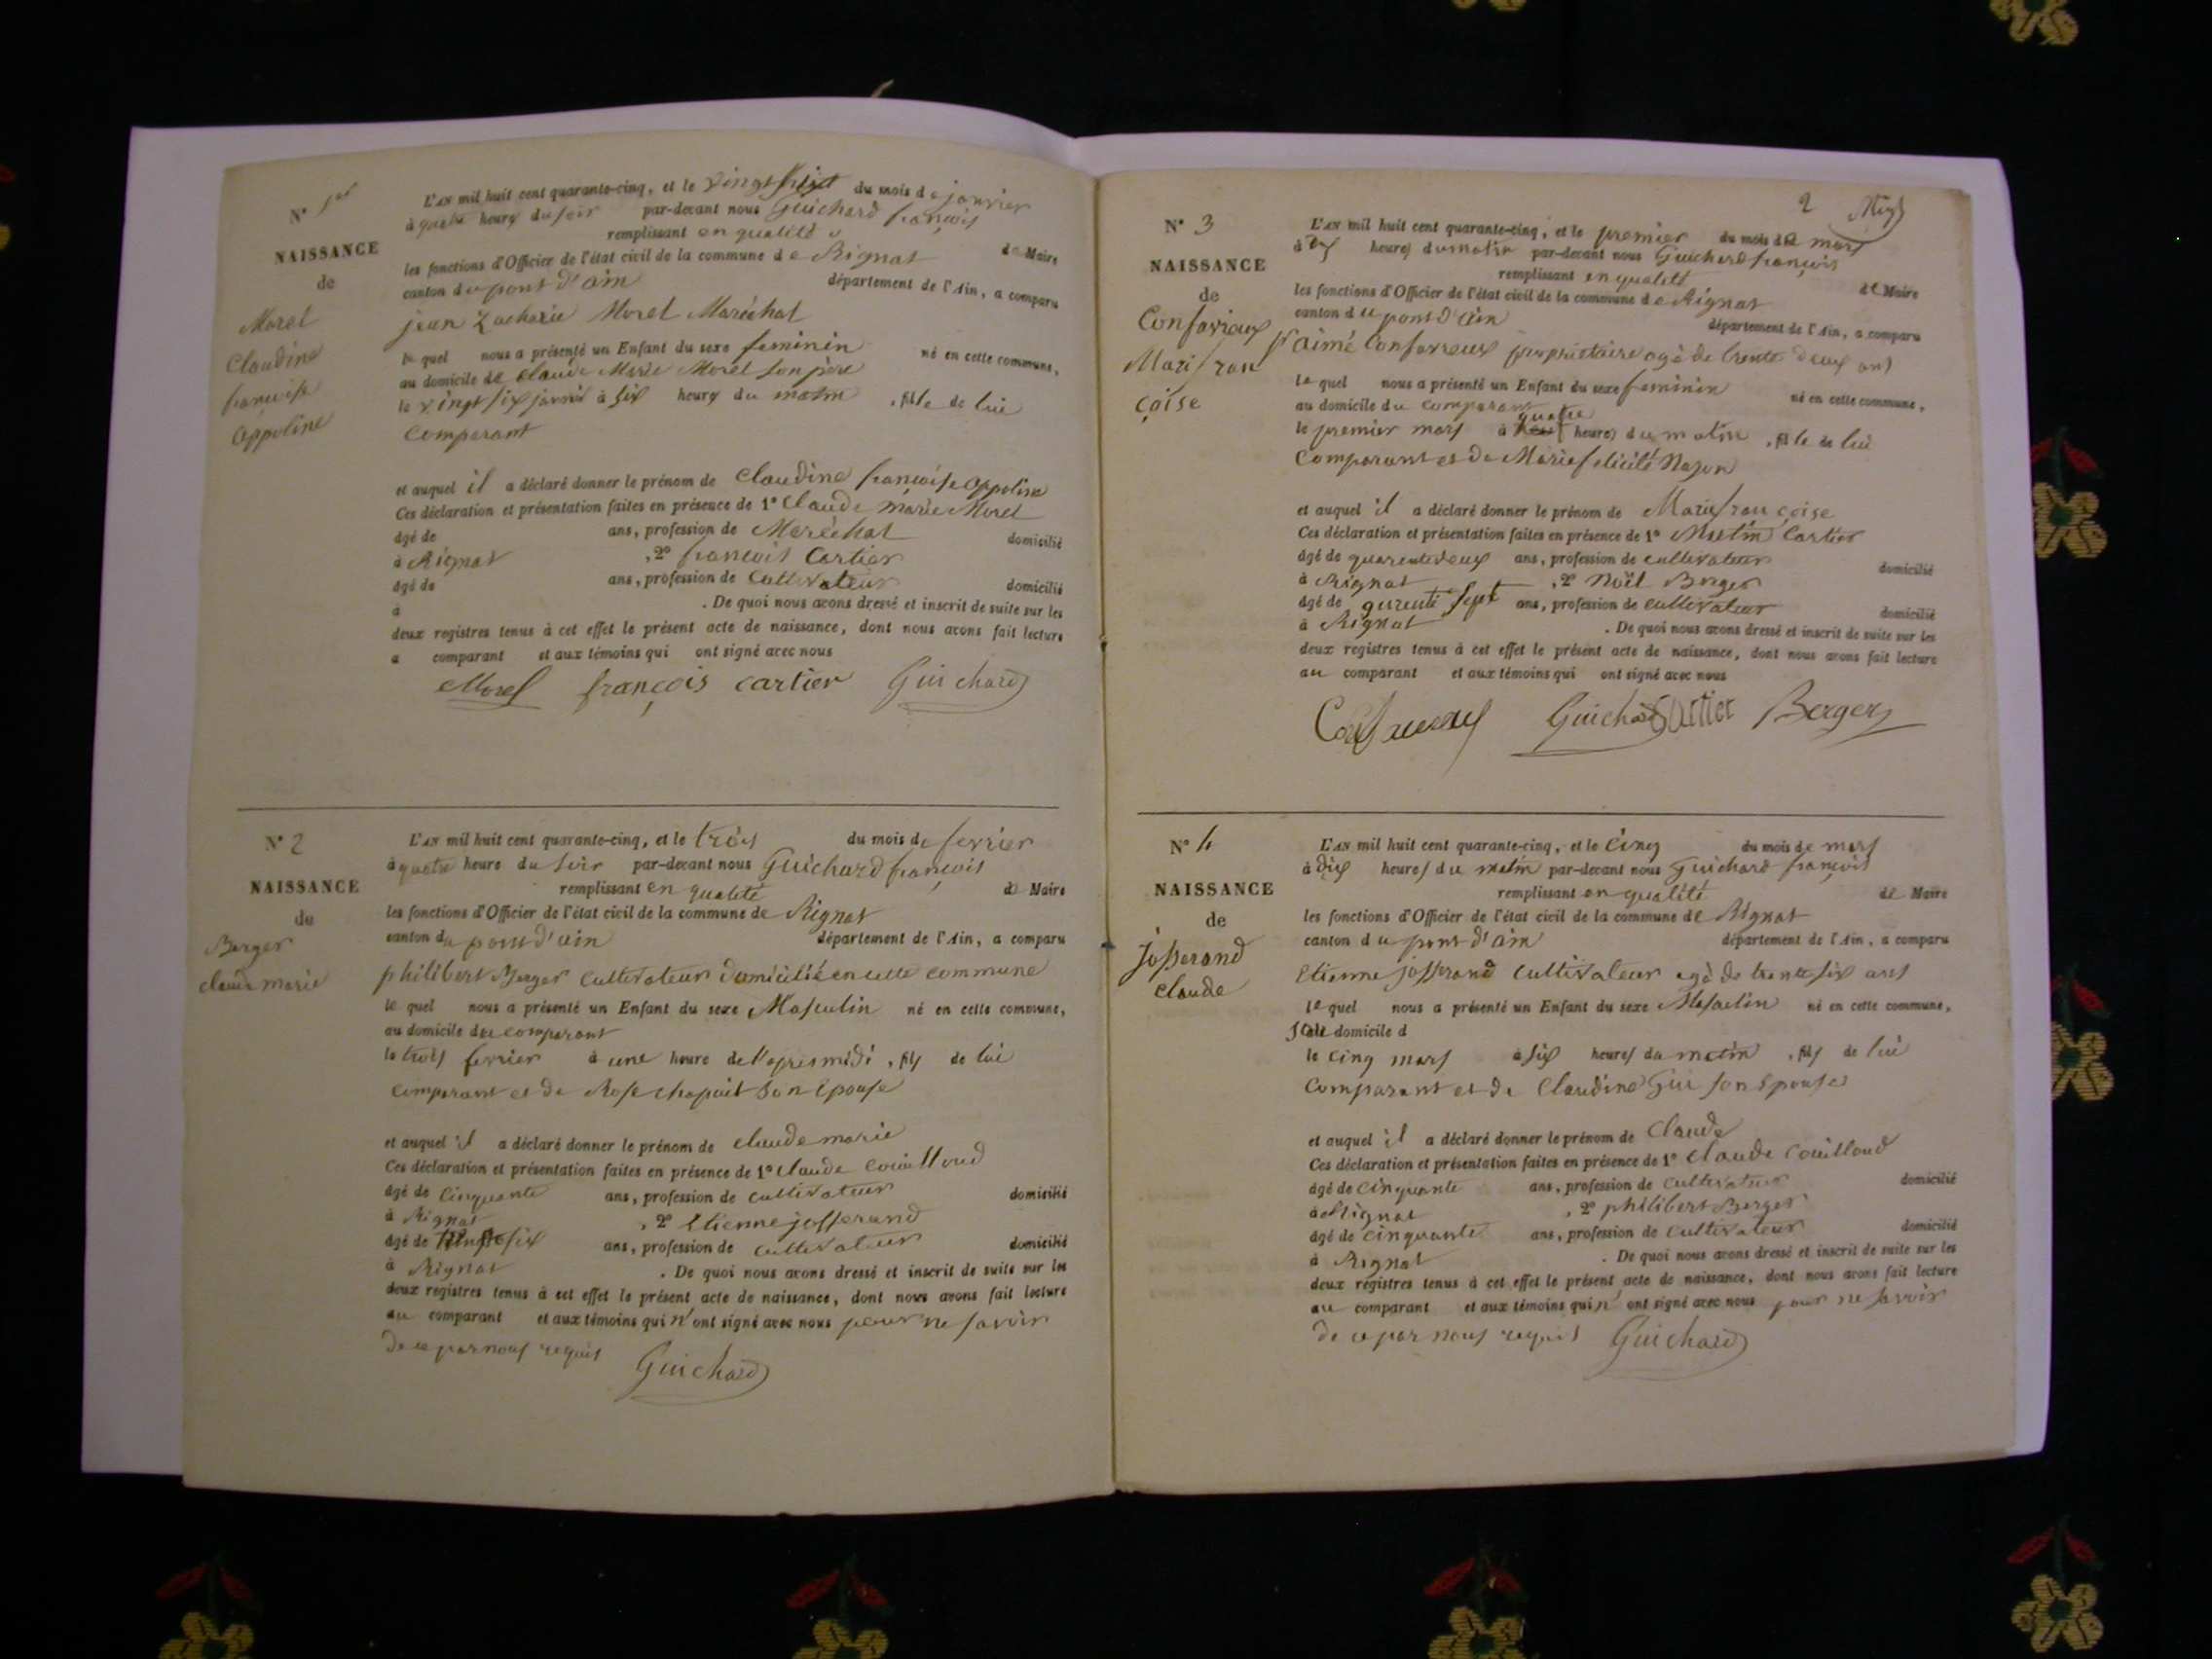 N° 1er
NAISSANCE
de
Morel
Claudine
francoise
appoline
L'AN mil huit cent quarante-cinq, et le vingt six du mois de janvier
à quatre heures du soir par-devant nous Guichard françois
remplissant en qualité de Maire
les fonctions d'Officier de l'état civil de la commune de Rignat
canton du pont d'ain département de l'Ain, a comparu
jean Zacharie Morel Maréchal
le quel nous a présenté un Enfant du sexe feminin né en cette commune,
au domicile de claude Marie Morel son père
le vingt six janvier à six heures du matin , fille de lui
comparant
et auquel il a déclaré donner le prénom de Claudine françoise appoline
Ces déclaration et présentation faites en présence de 1° Claude marie Morel
âgé de ans, profession de Maréchal domicilié
à Rignat , 2° francois Cartier
âgé de ans, profession de Cultivateur domicilié
à . De quoi nous avons dressé et inscrit de suite sur les
deux registres tenus à cet effet le présent acte de naissance, dont nous avons fait lecture
a comparant et aux témoins qui ont signé avec nous
Morel françois cartier Guichard
N° 2
NAISSANCE
de
Berger
claude marie
L'AN mil huit cent quarante-cinq, et le trois du mois de fevrier
à quatre heure du soir par-devant nous Guichard françois
remplissant en qualité de Maire
les fonctions d'Officier de l'état civil de la commune de Rignat
canton du pont d'ain département de l'Ain, a comparu
philibert Berger cultivateur domicilié en cette commune
le quel nous a présenté un Enfant du sexe Masculin né en cette commune,
au domicile du comparant
le trois fevrier à une heure de l'apres midi , fils de lui
comparant et de Rose chapuit son épouse
et auquel il a déclaré donner le prénom de claude marie
Ces déclaration et présentation faites en présence de 1° claude couilloud
âgé de cinquante ans, profession de cultivateur domicilié
à Rignat , 2° Etienne josserand
âgé de trente six ans, profession de cultivateur domicilié
à Rignat . De quoi nous avons dressé et inscrit de suite sur les
deux registres tenus à cet effet le présent acte de naissance, dont nous avons fait lecture
au comparant et aux témoins qui n'ont signé avec nous pour ne savoir
de ce par nous requis Guichard
2
N° 3
NAISSANCE
de
Confavreux
Marie fran
çoise
L'AN mil huit cent quarante-cinq, et le premier du mois de mars
à dix heures du matin par-devant nous Guichard françois
remplissant en qualité de Maire
les fonctions d'Officier de l'état civil de la commune de Rignat
canton du pont d'ain département de l'Ain, a comparu
aimé Confavreux propriétaire agé de trente deux ans
le quel nous a présenté un Enfant du sexe feminin né en cette commune,
au domicile du comparant
le premier mars à quatre heures du matin , fille de lui
comparant et de Marie felicité
et auquel il a déclaré donner le prénom de Marie françoise
Ces déclaration et présentation faites en présence de 1° Cartier
âgé de quarente deux ans, profession de cultivateur domicilié
à Rignat , 2° Noël Berger
âgé de qurente sept ans, profession de cultivateur domicilié
à Rignat . De quoi nous avons dressé et inscrit de suite sur les
deux registres tenus à cet effet le présent acte de naissance, dont nous avons fait lecture
au comparant et aux témoins qui ont signé avec nous
Confavreux Guichard Cartier Berger
N° 4
NAISSANCE
de
josserand
claude
L'AN mil huit cent quarante-cinq, et le cinq du mois de mars
à dix heures du matin par-devant nous Guichard françois
remplissant en qualité de Maire
les fonctions d'Officier de l'état civil de la commune de Rignat
canton du pont d'ain département de l'Ain, a comparu
Etienne josserand cultivateur agé de trente six ans
le quel nous a présenté un Enfant du sexe Masculin né en cette commune,
son domicile d
le cinq mars à six heures du matin , fils de lui
comparant et de Claudine Gui son Epouse
et auquel il a déclaré donner le prénom de Claude
Ces déclaration et présentation faites en présence de 1° claude couilloud
âgé de cinquante ans, profession de cultivateur domicilié
à Rignat , 2° philibert Berger
âgé de cinquante ans, profession de cultivateur domicilié
à Rignat . De quoi nous avons dressé et inscrit de suite sur les
deux registres tenus à cet effet le présent acte de naissance, dont nous avons fait lecture
au comparant et aux témoins qui n'ont signé avec nous pour ne savoir
de ce par nous requis Guichard